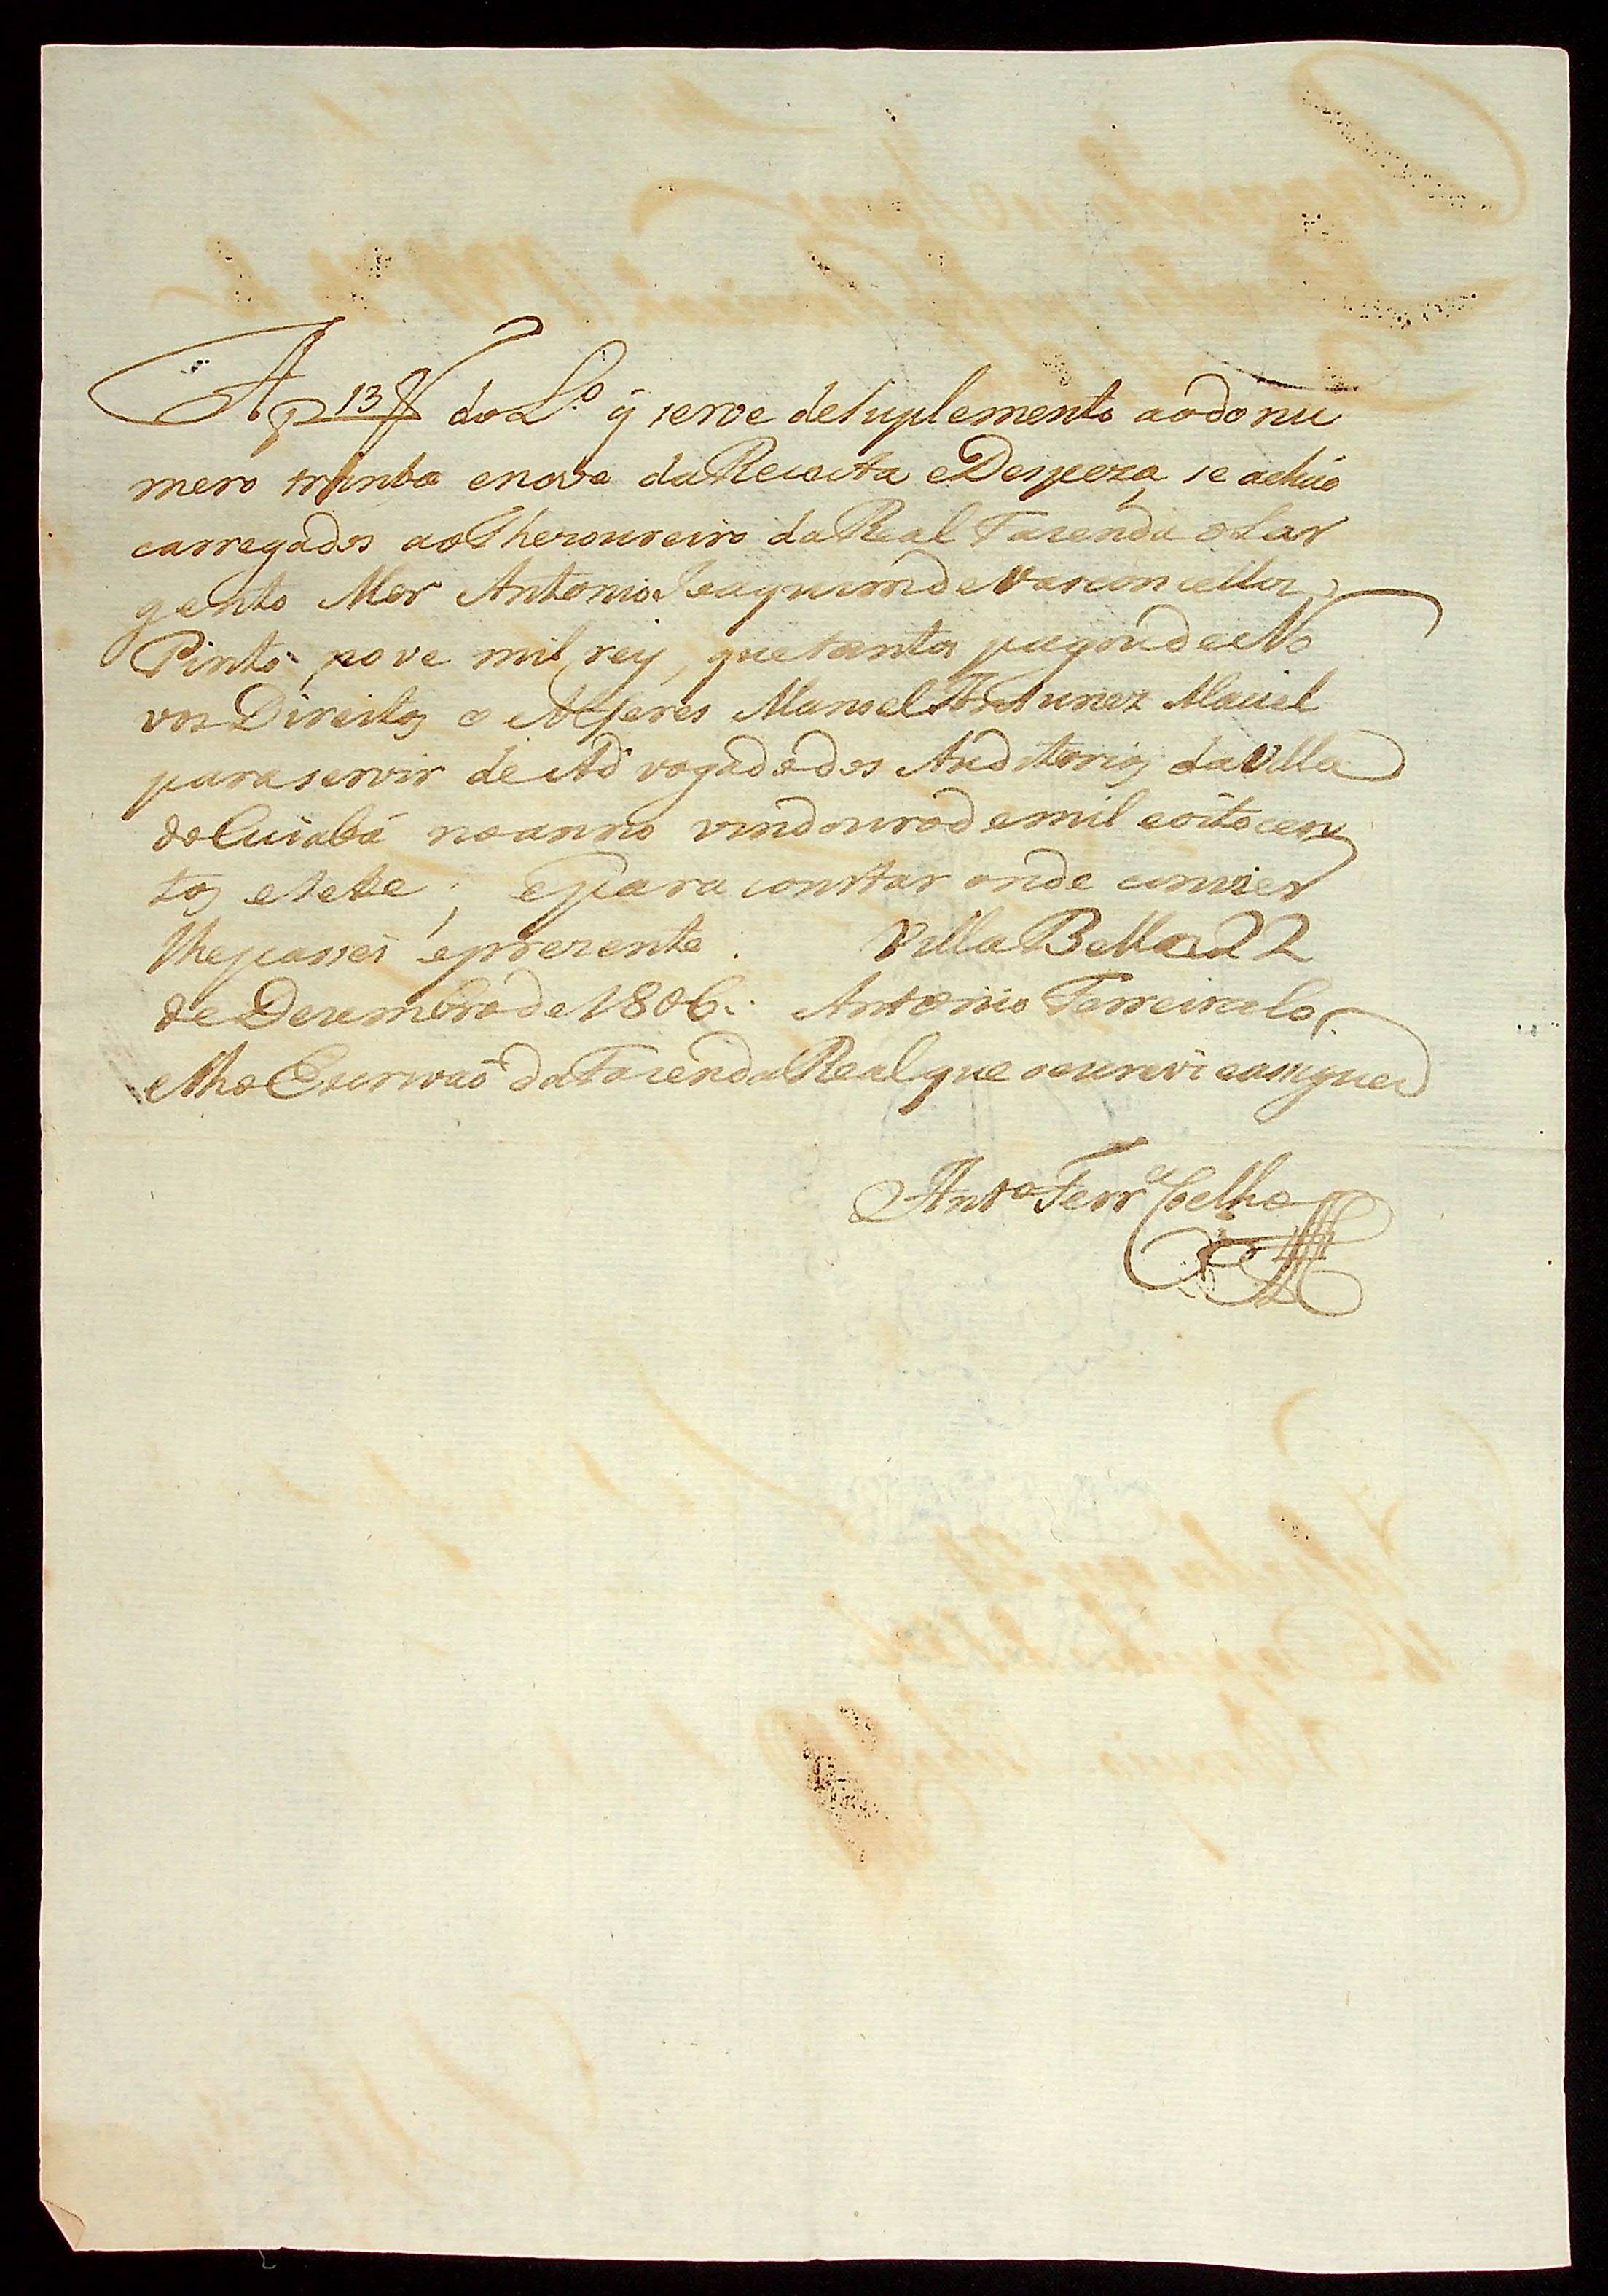 A f 13 V do L.º q̃ serve de suplemento ao do nu
mero trinta e nove da Receita e Despeza se achão
carregados ao Thezoureiro da Real Fazenda o Sar
gento Mor Antonio Joaquim de Vasconcellos
Pinto, nove mil reis, que tantos pagou de No
vos Direitos o Alferes Manoel Antunez Maciel
para servir de Advogado dos Auditorios da Villa
do Cuiabá no anno vindouro de mil e oito cen
tos e sete; e para constar onde convier
lhe passei o prezente. Villa Bella 22
de Dezembro de 1806. Antonio Ferreira Co
elho Escrivão da Fazenda Real que o escrevi e asignei
Ant.º Ferr.ª Coelho